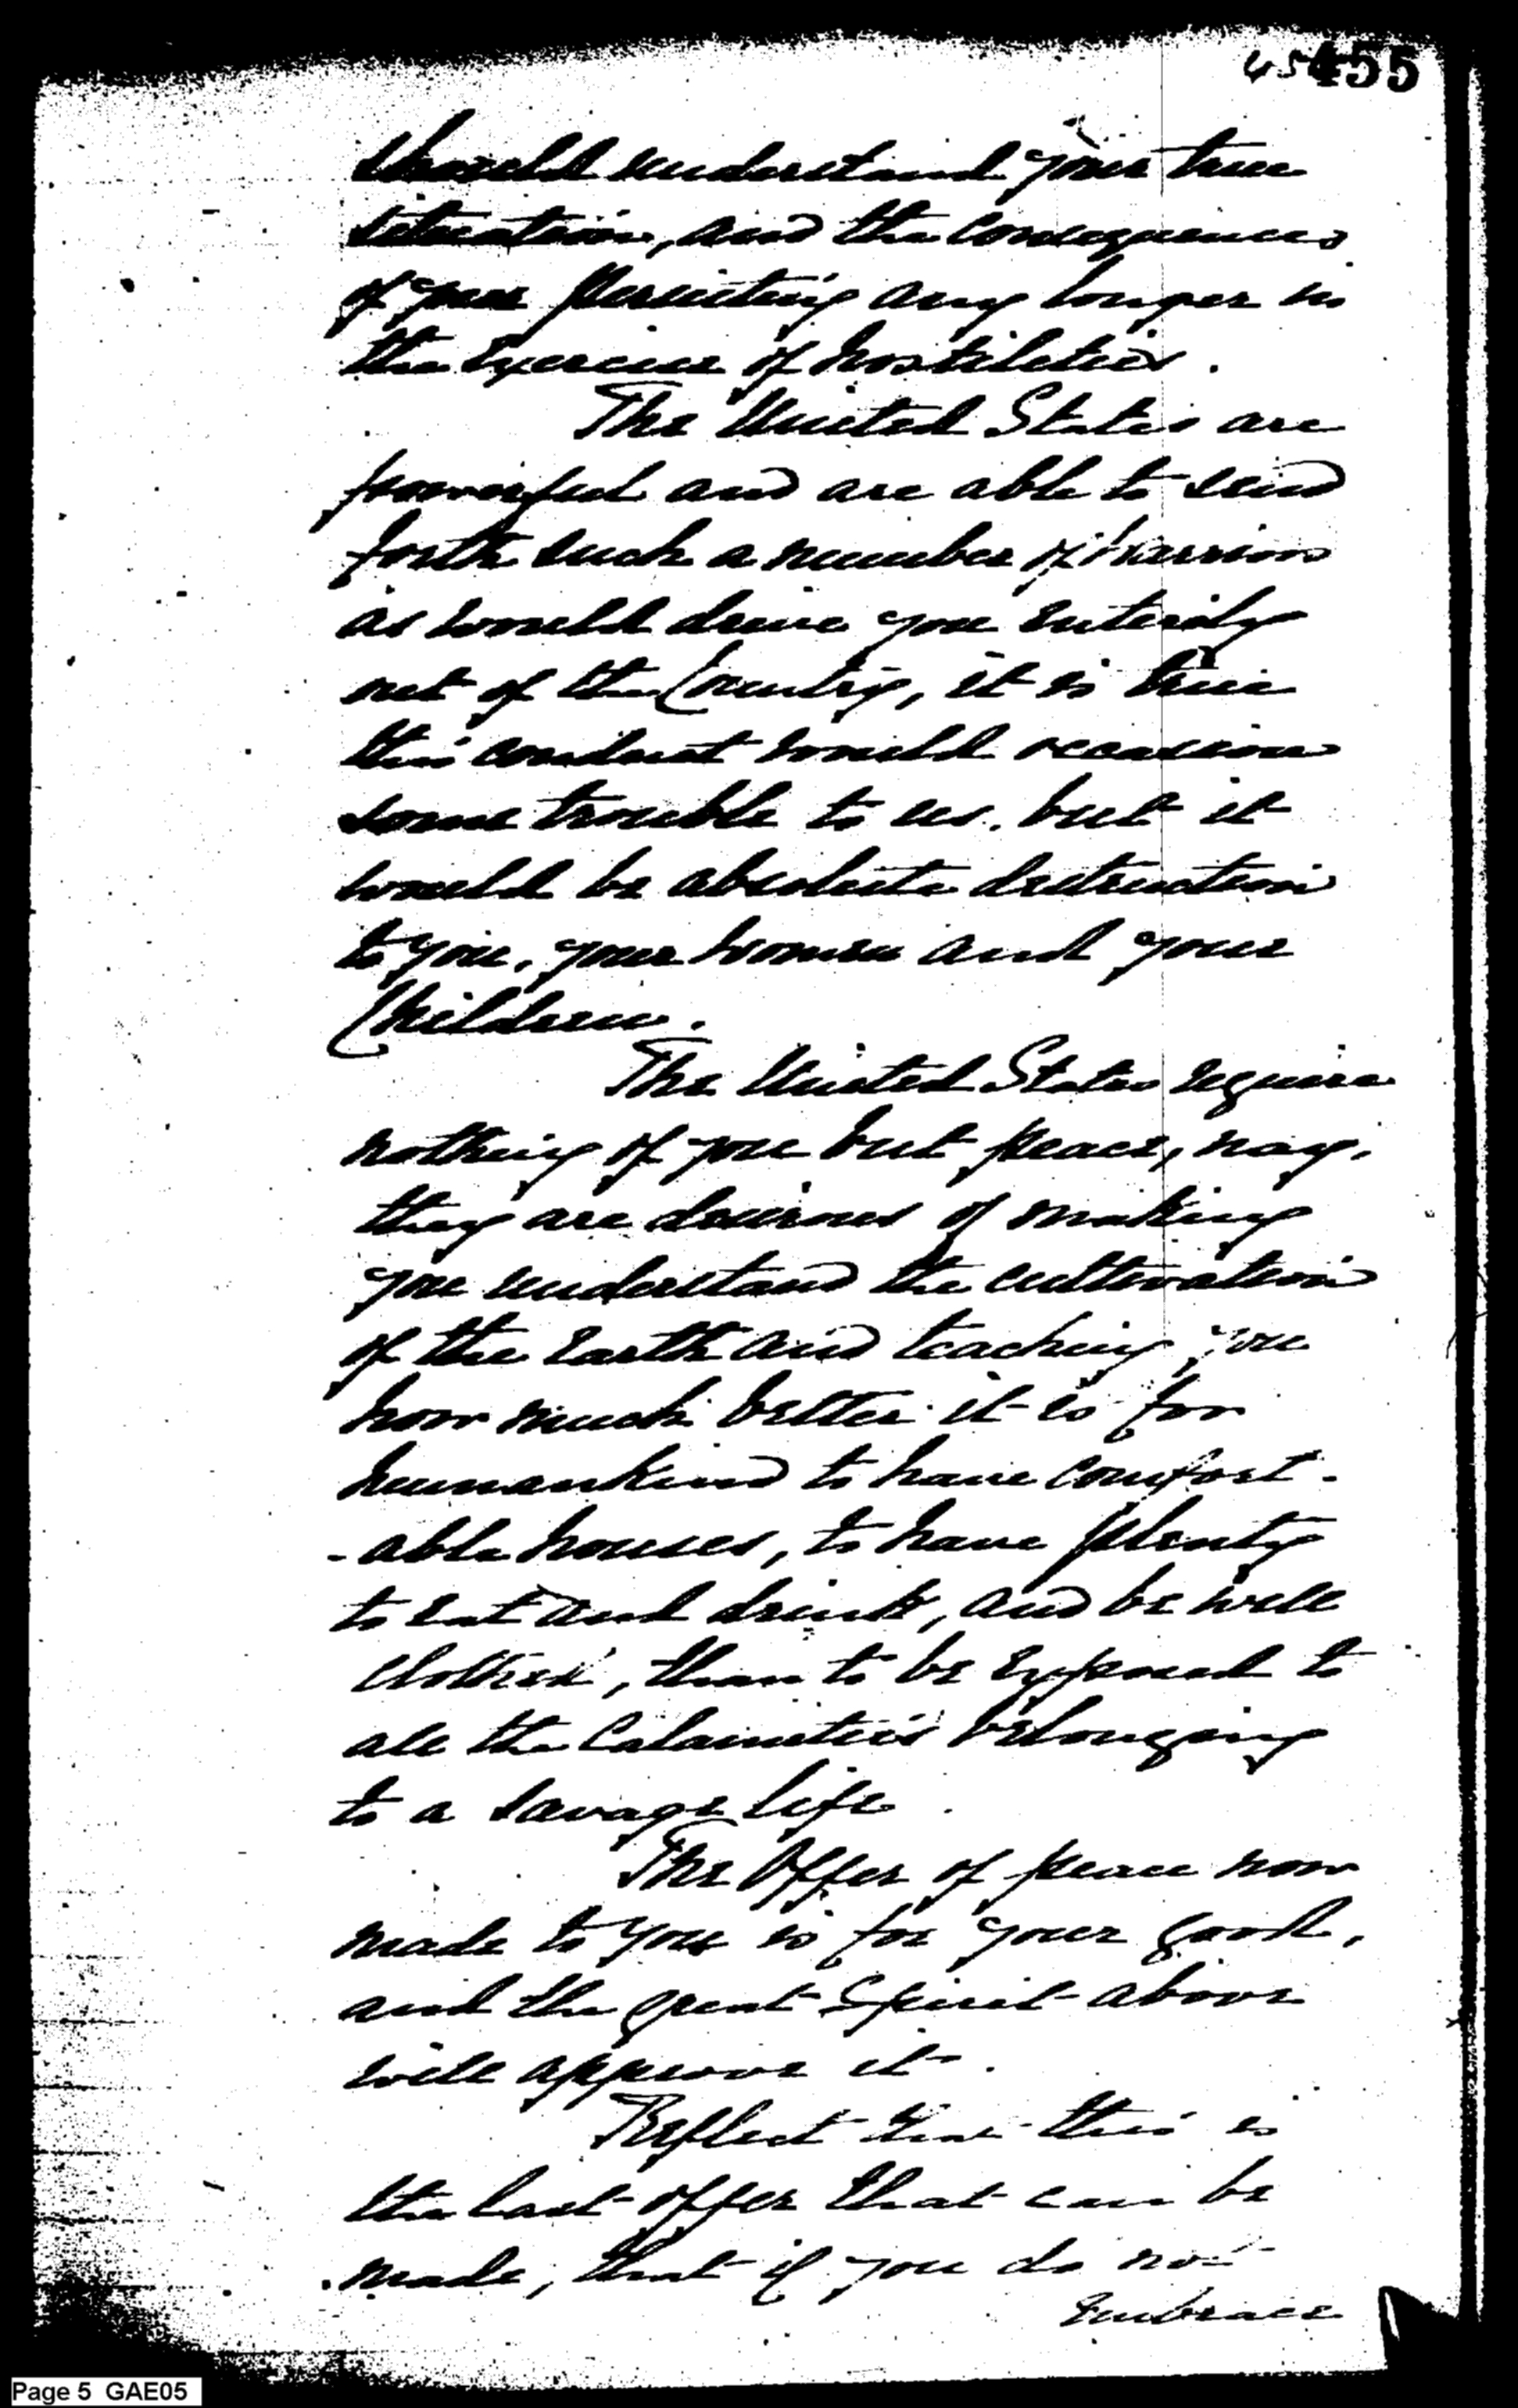 45 455
should understand your true
situation, and the consequences
of your persisting any longer in
the Exercise of hostilities.
The United States are
powerful and are able to send
forth such a number of Warriors
as would drive you Entirely
out of the Country, it is true
this conduct would occasion
some trouble to us, but it
would be absolute destruction
to you, your women and your
Children.
The United States require
nothing of you but peace, nay,
they are desirous of making
you understand the cultivation
of the Earth and teaching you
how much better it is for
humankind to have comfort-
-able houses, to have plenty
to Eat and drink, and be well
clothed, than to be Exposed to
all the Calamities belonging
to a savage life.
The Offer of peace now
made to you is for your good,
and the great Spirit above
will approve it.
Reflect that this is
the last offer that can be
made, that if you do not
Embrace
Page 5 GAE05